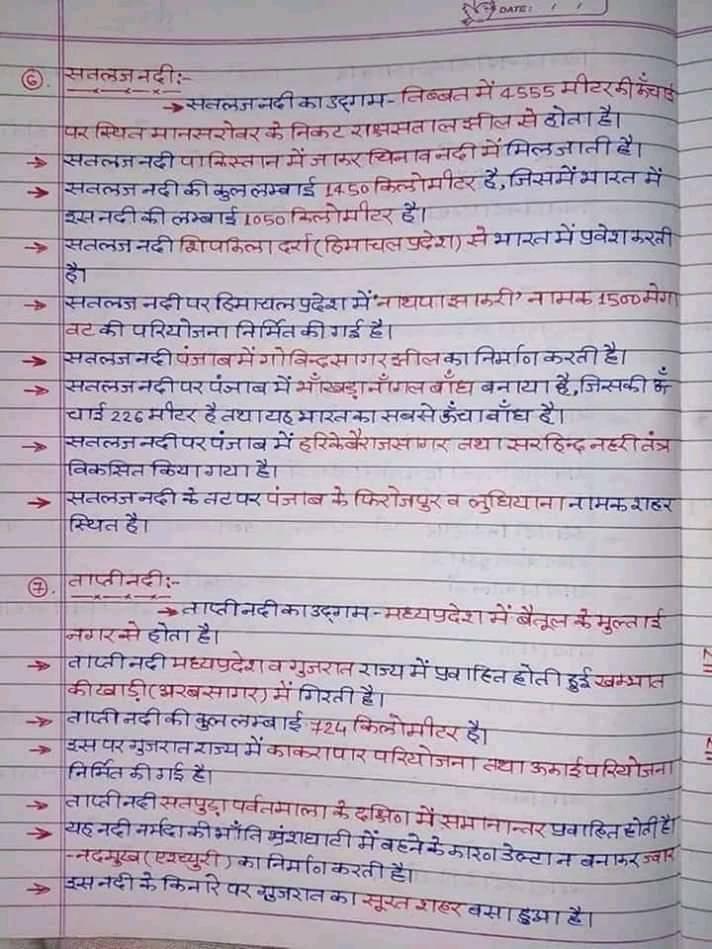 DATE: / /
⑥. सतलज नदी:-
→ सतलज नदी का उद्गम- तिब्बत में 4555 मीटर की ऊँचाई
पर स्थित मानसरोवर के निकट राक्षसताल झील से होता है।
→ सतलज नदी पाकिस्तान में जाकर चिनाव नदी में मिल जाती है।
→ सतलज नदी की कुल लम्बाई 1450 किलोमीटर है, जिसमें भारत में
इस नदी की लम्बाई 1050 किलोमीटर है।
→ सतलज नदी शिपकिला दर्रा (हिमाचल प्रदेश) से भारत में प्रवेश करती
है।
→ सतलज नदी पर हिमाचल प्रदेश में 'नाथपा झाकरी' नामक 1500 मेगा
वट की परियोजना निर्मित की गई है।
→ सतलज नदी पंजाब में गोबिन्द सागर झील का निर्माण करती है।
→ सतलज नदी पर पंजाब में भाँखड़ा नाँगल बाँध बनाया है, जिसकी ऊँ
चाई 226 मीटर है तथा यह भारत का सबसे ऊँचा बाँध है।
→ सतलज नदी पर पंजाब में हरिके बैराज सागर तथा सरहिन्द नहरी तंत्र
विकसित किया गया है।
→ सतलज नदी के तट पर पंजाब के फिरोजपुर व लुधियाना नामक शहर
स्थित है।
⑦. ताप्ती नदी:-
→ ताप्ती नदी का उद्गम - मध्यप्रदेश में बैतूल के मुल्ताई
नगर से होता है।
→ ताप्ती नदी मध्यप्रदेश व गुजरात राज्य में प्रवाहित होती हुई खम्भात
की खाड़ी (अरब सागर) में गिरती है।
→ ताप्ती नदी की कुल लम्बाई 724 किलोमीटर है।
→ इस पर गुजरात राज्य में काकरापार परियोजना तथा ऊकाई परियोजना
निर्मित की गई है।
→ ताप्ती नदी सतपुड़ा पर्वतमाला के दक्षिण में समानान्तर प्रवाहित होती है।
→ यह नदी नर्मदा की भाँति भ्रंशघाटी में बहने के कारण डेल्टा न बनाकर ज्वार
-नदमुख (एश्च्युरी) का निर्माण करती है।
→ इस नदी के किनारे पर गुजरात का सूरत शहर बसा हुआ है।